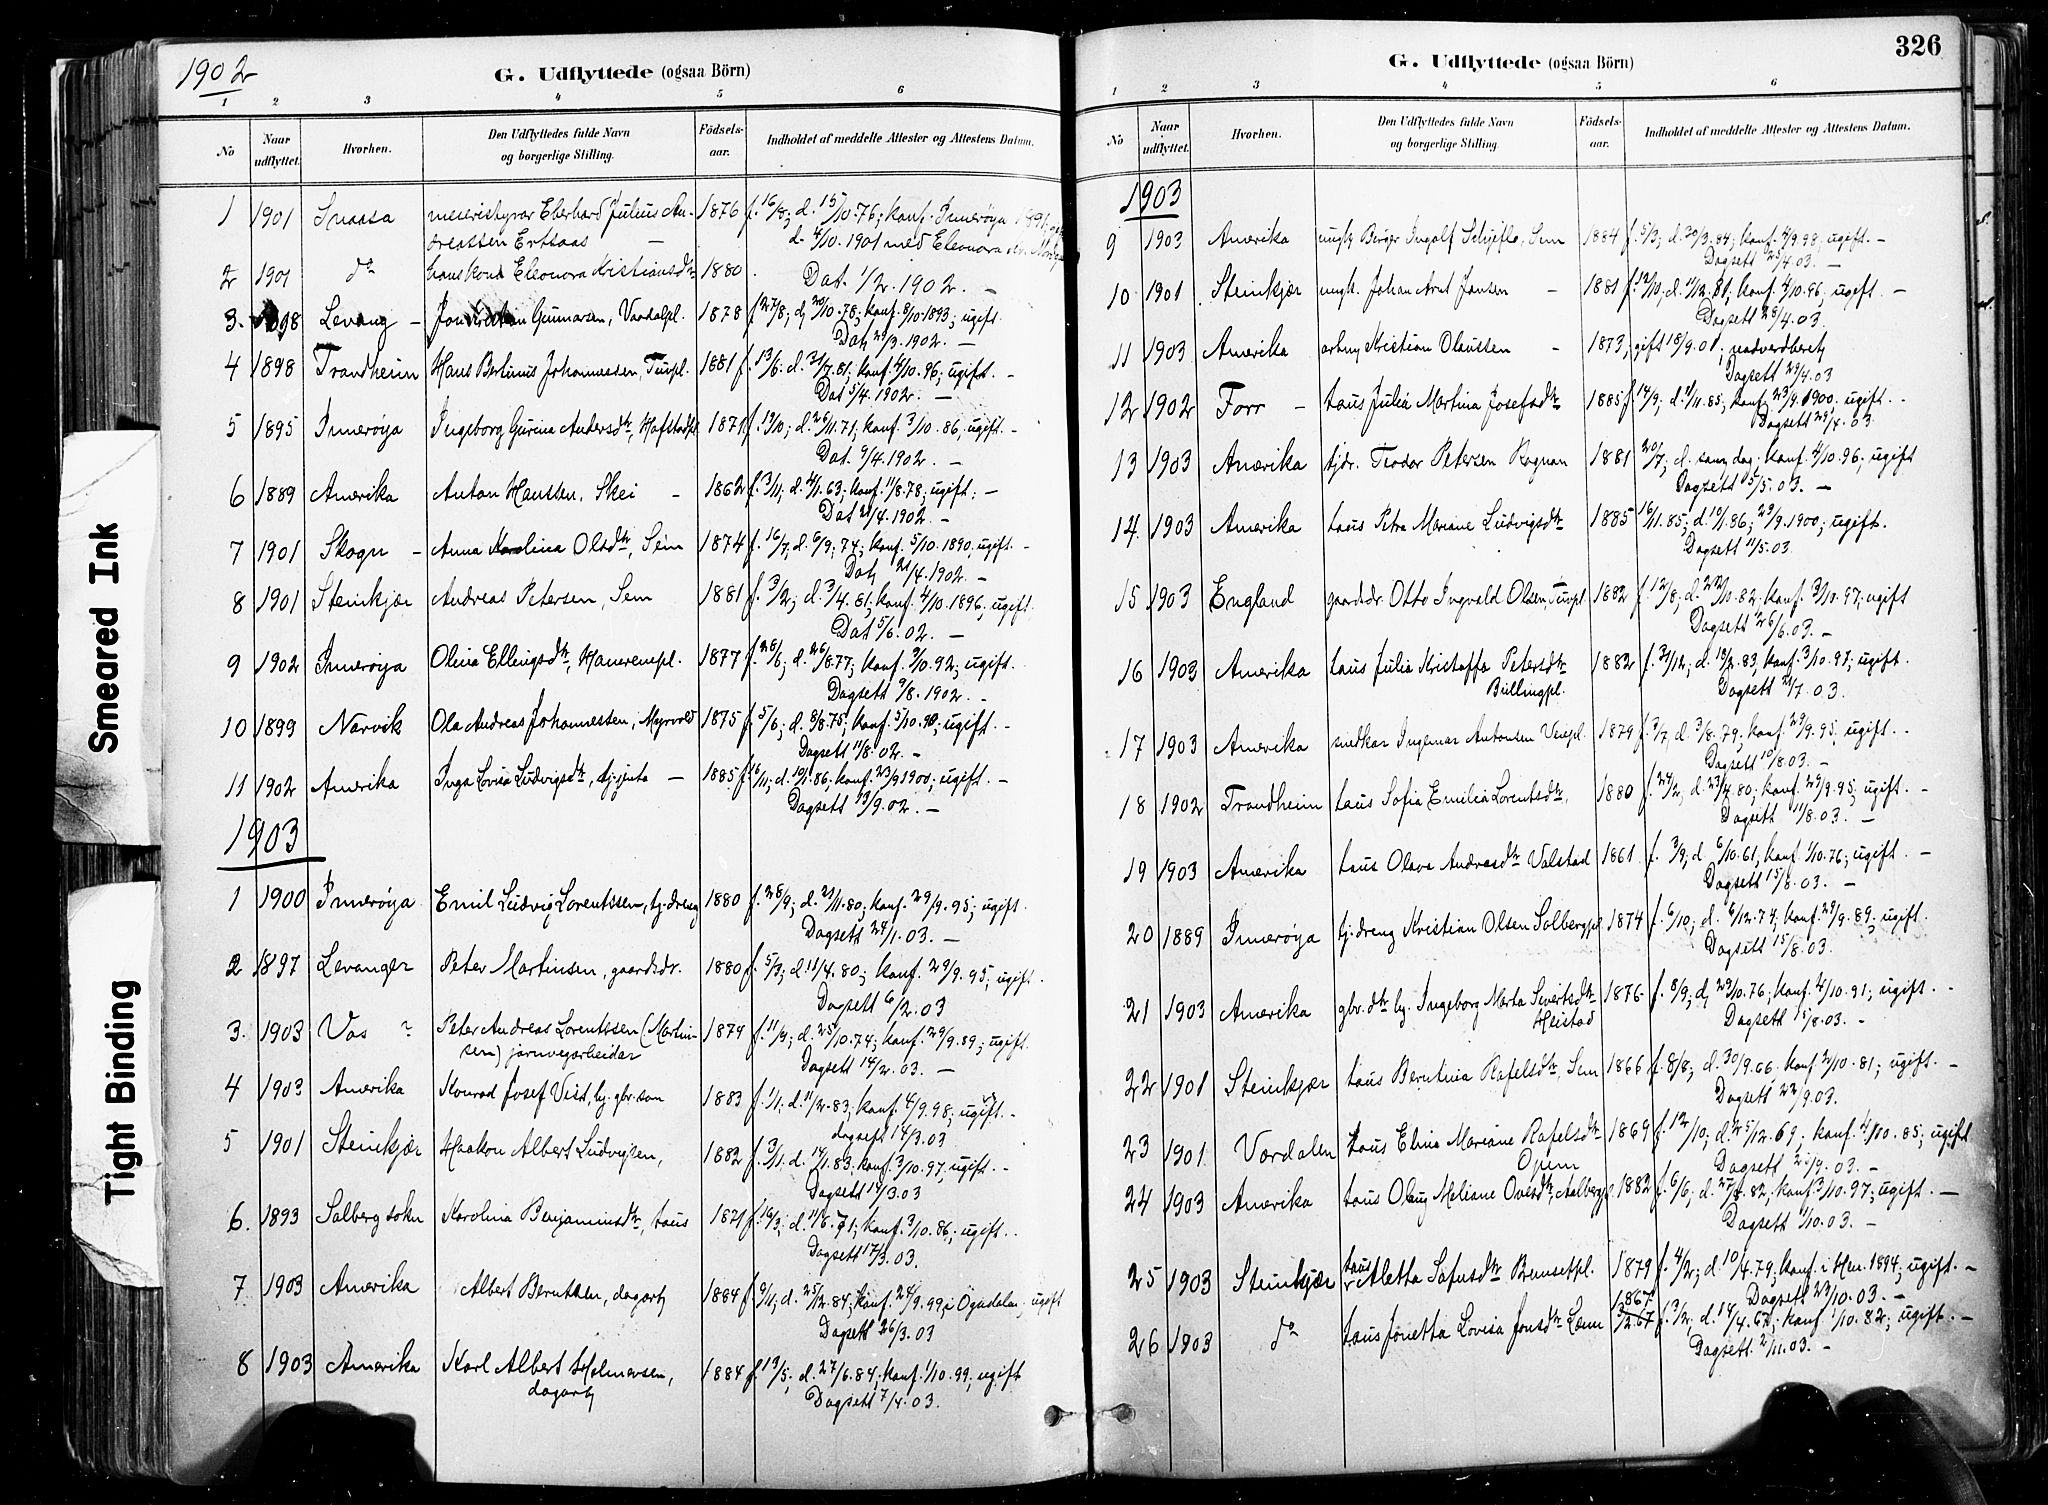 1902
G. Udflyttede (ogsaa Börn)
1 2 3 4 5 6
No
Naar udflyttet.
Hvorhen.
Den Udflyttedes fulde Navn og borgerlige Stilling.
Födsels-aar.
Indholdet af meddelte Attester og Attestens Datum.
1 1901 Snaasa meieristyrar Eberhard Julius An- 1876 f. 16/8; d. 15/10.76; konf. Inneröya 1891;
dreassen d. 4/10. 1901 med Eleonora
2 1901 do hans kona Eleonora Kristiansdtr 1880 Dat. 1/2. 1902. —
3. 1898 Levang — Gunnarsen, Vardalpl. 1878 f. 27/8; d. 20/10.78; konf. 8/10 1893; ugift.
Dat. 21/3. 1902. —
4 1898 Trondheim Hans Berlinus Johannesen, Tuvpl. 1881 f. 13/6. d. 31/7.81; konf. 4/10.96; ugift. —
Dat 5/4. 1902. —
5 1895 Inneröya Ingeborg Gurina Andersdtr, Hofstadpl. 1871 f. 19/10; d. 26/11.71; konf. 3/10.86, ugift. —
Dat. 9/4. 1902. —
6 1889 Amerika Anton Hanssen, Skei — 1862 f. 3/11; d. 4/1.63; konf. 11/8.78; ugift; —
Dat 21/4. 1902. —
7 1901 Skogn — Anna Karolina Olsdtr, Sem 1874 f. 16/7; d. 6/9; 74; konf. 5/10. 1890, ugift. —
Dat. 21/4. 1902. —
8 1901 Steinkjær Andreas Petersen, Sem 1881 f. 3/2; d. 3/4. 81; konf. 4/10. 1896; ugift.
Dat 5/6. 02. —
9 1902 Inneröya Olina Ellingsdtr, 1877 f. 28/6; d. 26/8.77; konf. 2/10.92; ugift.
Dagsett 9/8. 1902. —
10 1899 Narvik Ola Andreas Johannessen, Myrvold 1875 f. 5/6; d. 8/8.75; konf. 5/10.90; ugift. —
Dagsett 11/8. 02. —
11 1902 Amerika Inga Lovisa Ludvigsdtr, tj.jenta — 1885 f. 16/11; d. 10/1.86; konf. 23/9 1900; ugift. —
Dagsett 13/9. 02. —
1903
1 1900 Inneröya Emil Ludvig Lorentssen, tj.dreng 1880 f. 28/9; d. 21/11.80; konf. 29/9.95; ugift.
Dagsett 28/1. 03. —
2 1897 Levanger Peter Martinsen, gaardsdr. 1880 f. 5/3; d. 11/4.80; konf. 29/9.95; ugift.
Dagsett 6/2. 03
3. 1903 Vos Peter Andreas Lorentssen (Martin- 1874 f. 11/9; d. 25/10.74; konf. 29/9.89; ugift.
sen) jarnvegarbeidar Dagsett 14/2. 03. —
4 1903 Amerika Konrad Josef Vist, ug. gbr. son 1883 f. 1/1; d. 11/2.83; konf. 4/9.98; ugift. —
dagsett 14/3. 03
5 1901 Steinkjær Haakon Albert Ludvigsen, 1882 f. 3/11; d. 14/1.83, konf. 3/10.97, ugift. —
Dagsett 17/3. 03
6. 1893 Salberg sokn Karolina Benjaminsdtr, taus 1871 f. 16/3; d. 11/6. 71; konf. 3/10.86; ugift.
Dagsett 17/3. 03.
7 1903 Amerika Albert Berntsen, dagarb. 1884 f. 9/11; d. 25/12.84; konf. 24/9.99 i Ogndalen, ugift
Dagsett 26/3. 03
8 1903 Amerika Karl Albert Helmersen, 1884 f. 13/5; d. 27/6.84; konf. 1/10.99; ugift
dagarb. Dagsett 7/4. 03.
326
G. Udflyttede (ogsaa Börn)
1 2 3 4 5 6
No
Naar udflyttet.
Hvorhen.
Den Udflyttedes fulde Navn og borgerlige Stilling.
Födsels-aar.
Indholdet af meddelte Attester og Attestens Datum.
1903
9 1903 Amerika ungk. Birger Ingolf Sem 1884 f. 5/3; d. 30/3.84; konf. 4/9.98; ugift. —
Dagsett 25/4. 03. —
10 1901 Steinkjær ungk. Johan Arnt Jansen — 1881 f. 12/10; d. 11/12.81; konf. 4/10.96; ugift. —
Dagsett 28/4. 03.
11 1903 Amerika arbm. Kristian Olaussen — 1873, gift 18/9.01;
Dagsett 29/4. 03
12 1902 Forr — taus Julia Martina Josefsdtr 1885 f. 14/9; d. 1/11.85; konf. 23/9. 1900. ugift. —
Dagsett 29/4. 03
13 1903 Amerika tjdr. Teodor Petersen Rognan 1881 20/7; d. samm dag; konf. 4/10.96; ugift
Dagsett 5/5. 03. —
14. 1903 Amerika taus Petra Mariane Ludvigsdtr 1885 16/11.85; d. 10/1.86; 23/9. 1900; ugift.
Dagsett 11/5. 03.
15 1903 England gaardsdr. Otto Ingvald Olsen, Tuvpl 1882 f. 12/8; d. 22/10.82; konf. 3/10.97; ugift
Dagsett 26/6. 03. —
16 1903 Amerika taus Julia Kristoffa Petersdtr 1882 f. 31/12; d. 18/2.83, konf. 3/10.97; ugift.
Büllingpl. Dagsett 21/7. 03.
17 1903 Amerika snekkar Ingemar Antonsen 1879 f. 3/7, d. 3/8.79; konf. 29/9.95; ugift. —
Dagsett 10/8. 03. —
18 1902 Trondheim taus Sofia Emilia Lorentsdtr, 1880 f. 24/2, d. 23/4.80; konf. 29/9.95; ugift. —
Dagsett 11/8. 03. —
19 1903 Amerika taus Olava Andreasdtr Valstad 1861 f. 3/9, d 6/10.61, konf. 1/10.76; ugift. —
Dagsett 15/8. 03. —
20 1889 Inneröya tj.dreng Kristian Olsen Salbergpl 1874 f. 6/10; d. 6/12.74, konf. 29/9.89; ugift.
Dagsett 15/8. 03.
21 1903 Amerika gbr. dtr ug. Ingeborg Marta Sivertsdtr 1876 f. 8/9; d. 29/10.76; konf. 4/10.91; ugift. —
Heistad Dagsett 15/8. 03. —
22 1901 Steinkjær taus Berntina Rafelsdtr, Sem 1866 f. 8/8; d. 30/9.66 konf. 2/10.81; ugift. —
Dagsett 22/9. 03.
23 1901 Værdalen taus Elina Mariane Rafelsdtr 1869 f. 12/10; d. 25/12.69; konf. 4/10.85; ugift
Opem Dagsett 22/9. 03. —
24 1903 Amerika taus Olaug Meliane Ovesdtr, Aalbergpl 1882 f. 6/6; d. 27/8.82, konf. 3/10.97; ugift. —
Dagsett 1/10. 03. —
25 1903 Steinkjær taus Aletta Sofusdtr Bunsetpl. 1879 f. 4/2; d. 10/4.79; konf. i Hen. 1894; ugift. —
Dagsett 23/10. 03. —
26 1903 do taus Jonetta Lovisa Jonsdtr Lænn 1867 3/2.67 f. 3/2, d. 14/4.67; konf. 1/10.82; ugift. —
Dagsett 2/11. 03. —
Smeared Ink
Tight Binding